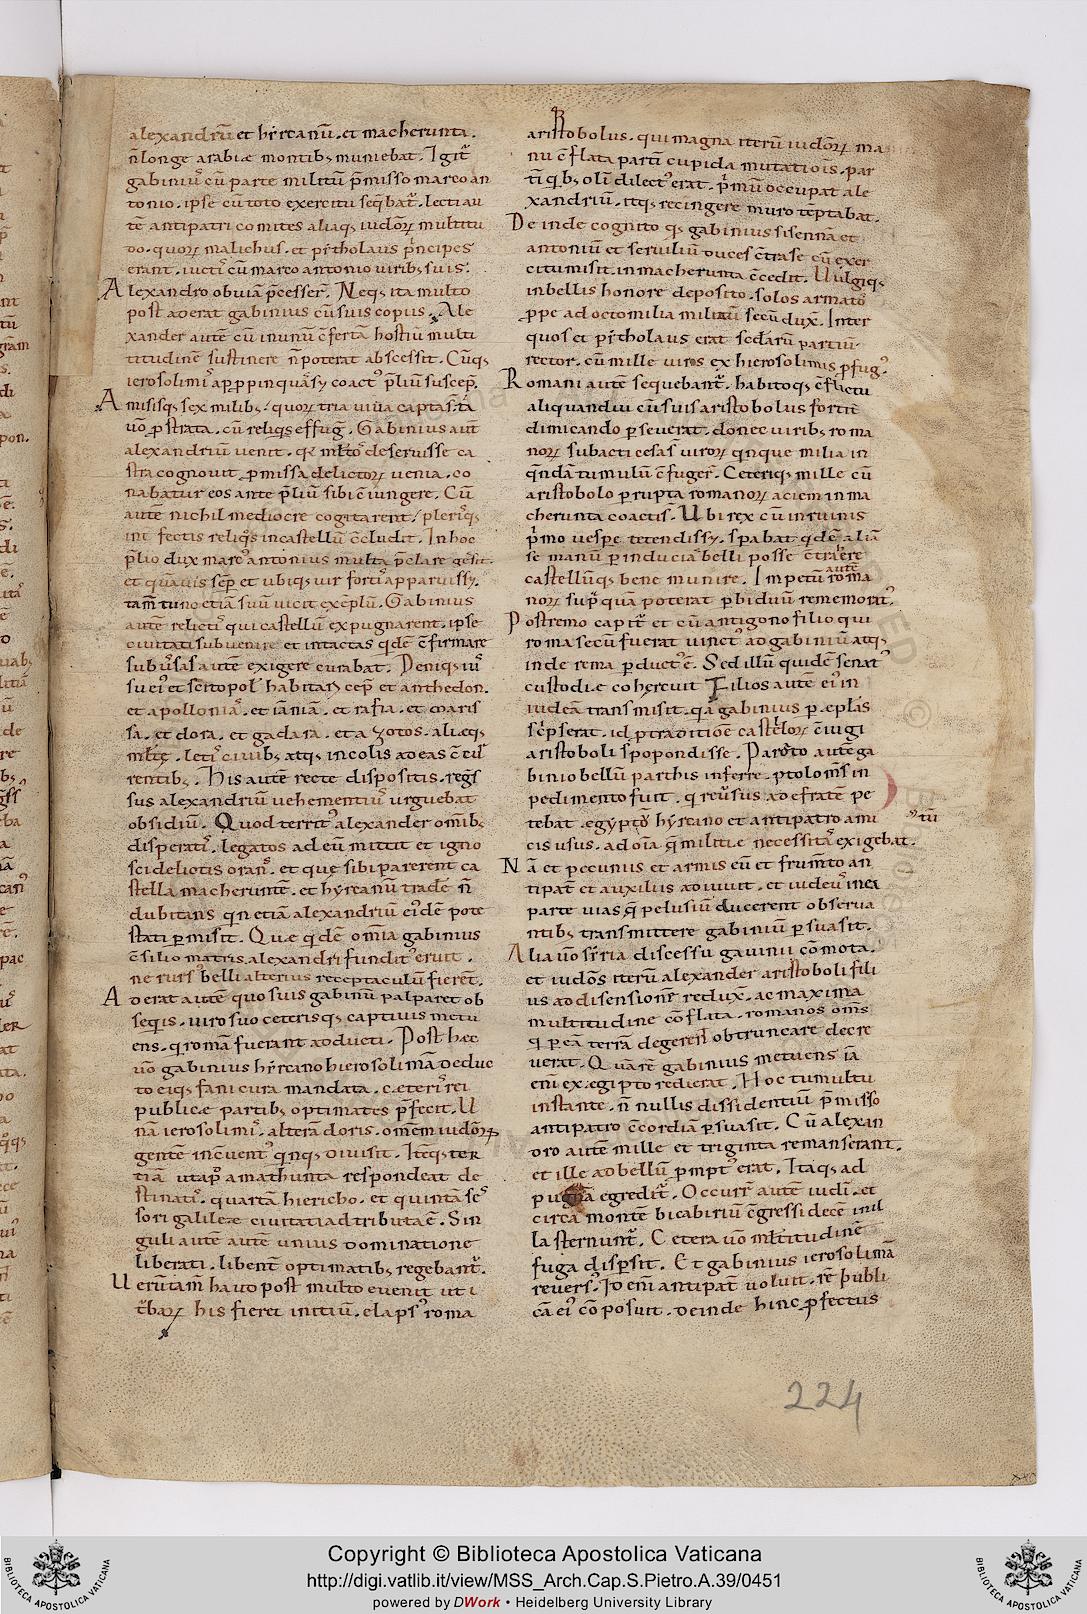 alexandriū et hẏrcanū. et macherunta.
n̄ longe arabiæ montibꝫ muniebat. Igit᷑
gabiniꝰ cū parte militū p̄misso marco an
tonio. ipse cū toto exercitu seq̄bat᷑. lecti au
tē antipatri comites aliaqꝫ iudeoꝝ multitu
do. quoꝝ malichus. et pitholaus p̄ncipes
erant. iucti᷑ cū marco antonio viribꝫ suis.
Alexandro obuiā p̄cesser̄. Neqꝫ ita multo
post aderat gabinius cū suis copiis. Ale
xander autē cū in unū c̄fertā hostiū multi
titudinē sustinere n̄ poterat abscessit. Cūqꝫ
misisqꝫ sex milibꝫ. quoꝝ tria uiua capta
uō p̄strata. cū reliqis effuḡ. Gabinius aut̄
alexandriū uenit.
stra cognouit. p̄missa delictoꝝ uenia. co
nabatur eos ante p̄liū sibi c̄iungere. Cū
autē nichil mediocre cogitarent. pleriqꝫ
int̄fectis reliqꝰs in castellū c̄cludit. In hoc
p̄lio dux marcꝰ antonius multa p̄clare gessit.
et quāuis sēp et ubiqꝫ uir fortiꝰ apparuiss&.
tam̄ tunc etiā suū uicit exēplū. Gabinius
autē relictiꝰ qui castellū expugnarent. ipse
ciuitati subuenire et intactas qdē c̄firmare
autē exigere curabat. Deniqꝫ
et scitopolꝰ habitari cep̄ et anthedon.
et apolloniaꝰ. et iāniā. et rafia. et maris
sa. et dora. et gadara. et azotos. aliæqꝫ
mlt̄ę. letiꝰ ciuibꝫ atqꝫ incolis ad eas
rentibꝫ. His autē recte dispositis. regs̄
sus alexandriū uehementiꝰ urguebat
obsidiū. Quod territꝰ alexander om̄ibꝫ
disperatiꝰ. legatos ad eū mittit et igno
sci delictis oranꝰ. et quę sibi parerent ca
stella macheruntē. et hẏrcanū tradēˢ n̄
dubitans qn etiā alexandriū ei᷑dē pote
stati p̄misit. Quæ qdē om̄ia gabinius
c̄silio matris alexandri funditꝰ eruit.
ne rursꝰ belli alterius receptaculū fierēt.
Aderat autē quo suis gabinū palparet ob
seqis. uiro suo ceterisqꝫ captiuis metu
ens. q romā fuerant adducti. Post hæc
uō gabinius hẏrcano hierosolimā deduc
to eiqꝫ fani cura mandata. ceteri᷑ rei
publicæ partibꝫ optimates p̄fecit. U
nā ierosolimiꝰ. alterā doris. omēm iudeoꝝ
gentē in c̄uentꝰ qnqꝫ diuisit. Itēqꝫ ter
tiā ut ap̄ amathunta respondeat de
stinatiꝰ. quartā hiericho. et quinta sēꝰ
sori galileæ ciuitati adtributa ē. Sin
guli autē autē unius dominatione
liberati. libent̄ optimatibꝫ regebant᷑.
Uerūtam̄ haud post multo euenit ut i
t̄baꝝ his fieret initiū. elapsꝰ roma
aristobolus. qui magna iterū iudeoꝝ ma
nu c̄flata parti cupida mutatiōis. par
tī qbꝫ olī dilectꝰ erat. p̄mū occupat ale
xandriū. itqꝫ recingere muro tēptabat.
Deinde cognito qꝫ gabinius sisennā et
antoniū et seruiliū duces c̄tra se cū exer
citu misit. in macherunta c̄cedit. Uulgiqꝫ
in bellis honore deposito. solos armatoꝰ
p̄pe ad octo milia militū secū dux̄. Inter
quos et pitholaus erat sc̄daꝝ partiū.
rector. cū mille uiros ex hierosolimis p̄fugꝰ.
Romani autē sequebant᷑. habitoqꝫ c̄flictu
aliquandiu cū suis aristobolus fortit̄
dimicando p̄seuerat. donec uiribꝫ roma
noꝝ subacti cesaꝰ uiroꝝ qnque milia in
qndā tumulū c̄fuger̄. Ceteriqꝫ mille cū
aristobolo p̄rupta romanoꝝ acie in ma
cherunta coactis. Ubi rex cū in ruinis
p̄mo uespe tetendiss&. spabat qdē aliā
se manū p̄ inducia belli posse c̄trahere
autē
castellūqꝫ bene munire. Impetū roma
noꝝ supꝰ quā poterat p̄ biduū rememoratꝰ.
Postremo capit᷑ et cū antigono filio qui
roma secū fuerat uinctꝰ ad gabiniū atqꝫ
inde roma p̄ductꝰ ē. Sed illū quidē senatꝰ
custodiæ cohercuit. Filios autē eiꝰ in
iudeā transmisit. qa gabinius p̄ ep̄lās
sc̄pserat. id p traditiōe castelloꝝ c̄iugi
aristoboli spopondisse. Parato autē ga
binio bellū parthis inferre. ptolomēˢ in
pedimento fuit. q reuersus ad efratē pe
tebat. egyptoꝰ hẏrcano et antipatro ami
tū
cis usus. ad oīa q̄ militiæ necessitaꝰ exigebat.
Nā et pecuniis et armis eū et frumto an
tipat̄ et auxiliis adiuuit. et iudeuꝰ in ea
parte uias q̄ pelusiū ducerent obserua
ntibꝫ transmittere gabiniū p̄suasit.
Alia uō siria discessu gauinii cōmota.
et iudeosꝰ iterū alexander aristoboli fili
us ad disensionē redux̄. ac maxima
multitudine cōflata. romanos om̄s
q p eā terrā degerent obtruncare decre
uerat. Quārē gabinius metuens iā
eni᷑ ex ægipto redierat. Hoc tumultu
instante. n̄ nullis dissidentiū p̄misso
antipatro c̄cordiā p̄suasit. Cū alexan
dro autē mille et triginta remanserant.
et ille ad bellū p̄mptꝰ erat. Itaqꝫ ad
pugnā egredit᷑. Occurr̄ autē iudi᷑. et
circa montē bicabiriū c̄gressi decē mil
la sternunt᷑. Cetera uō mltitudinē
fuga disp̄sit. Et gabinius ierosolimā
reuersꝰ. Id eni᷑ antipat̄ uoluit. rē publi
cā eiꝰ cōposuit. deinde hinc p̄fectus
224
Copyright © Biblioteca Apostolica Vaticana
http://digi.vatlib.it/view/MSS_Arch.Cap.S.Pietro.A.39/0451
powered by DWork • Heidelberg University Library